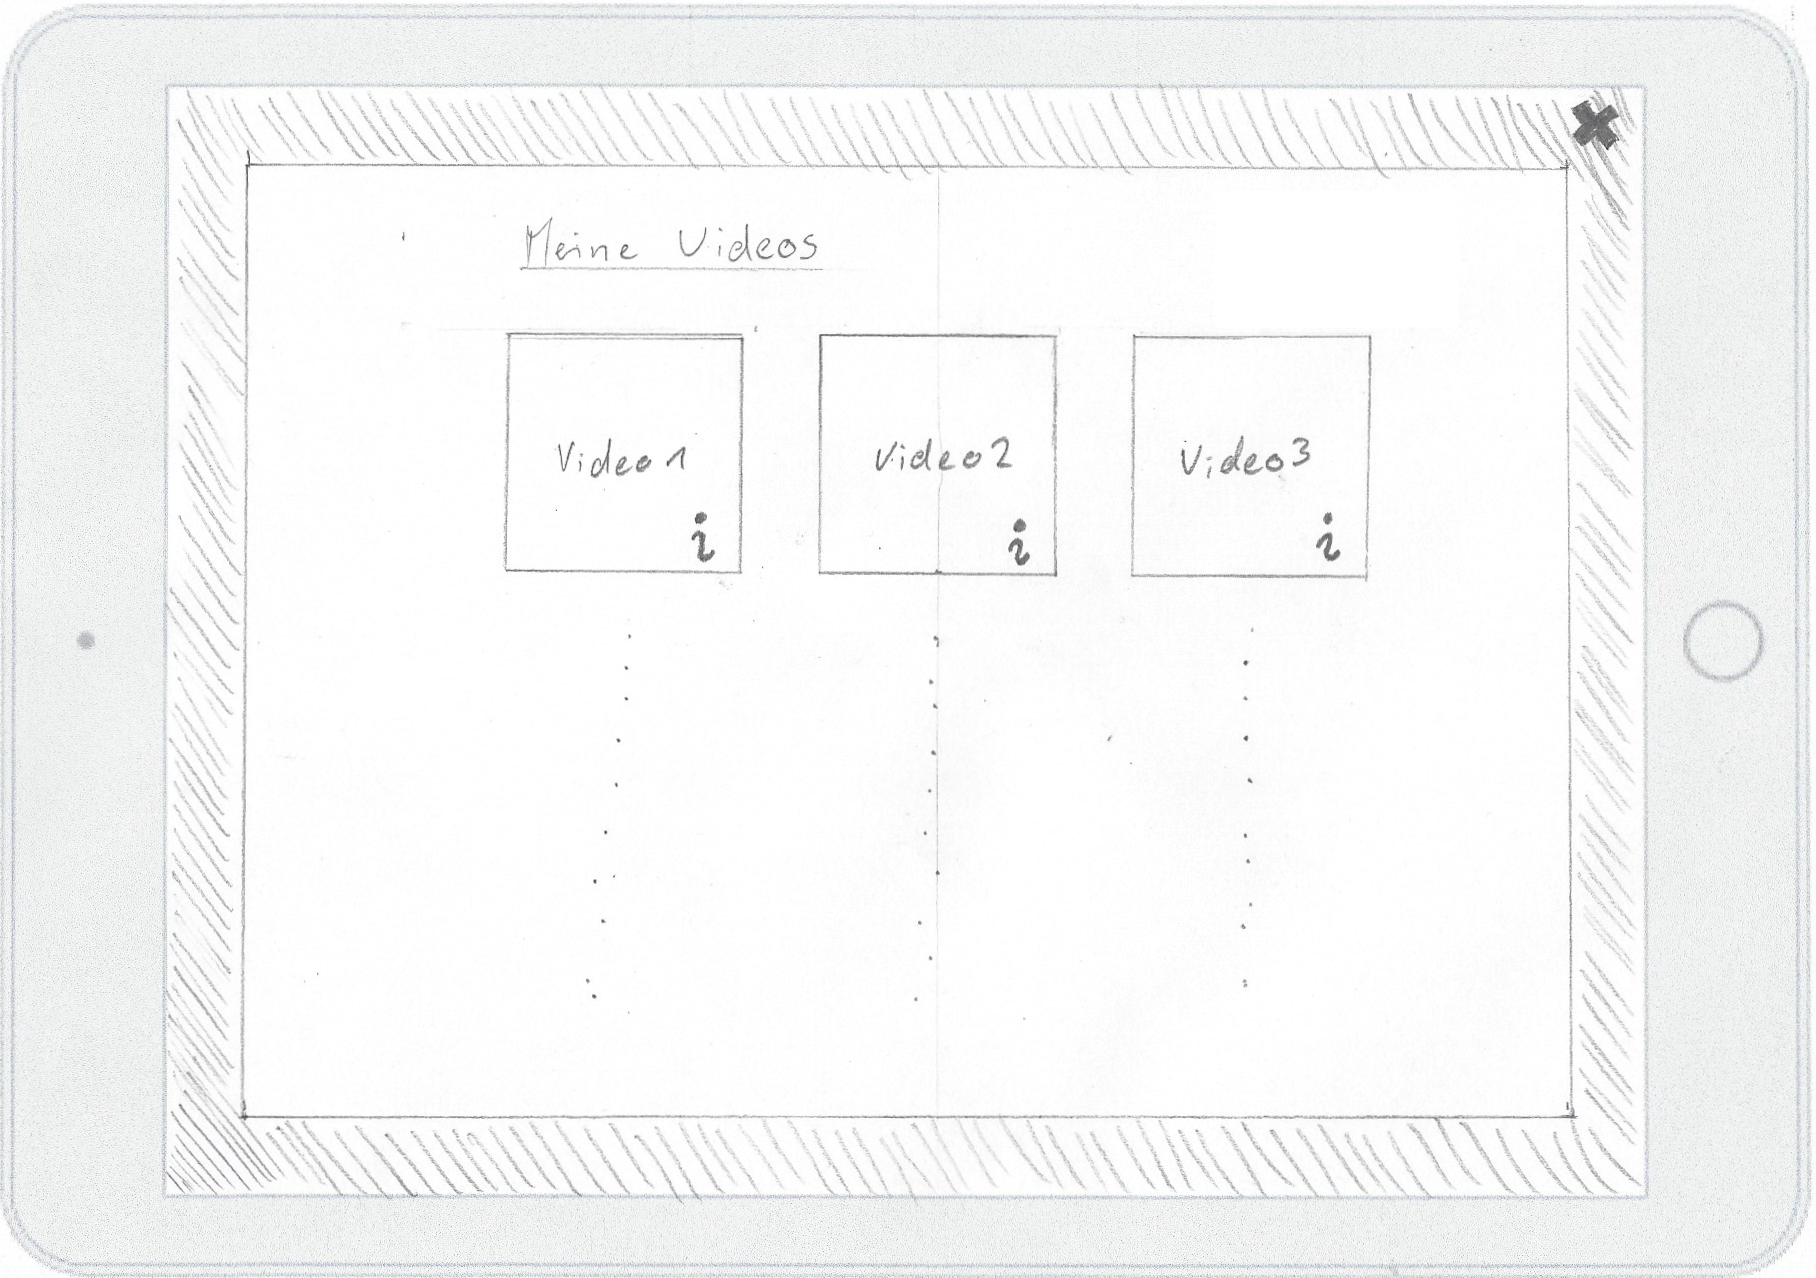 Meine Videos
Video 1
Video 2
Video 3
i
i
i